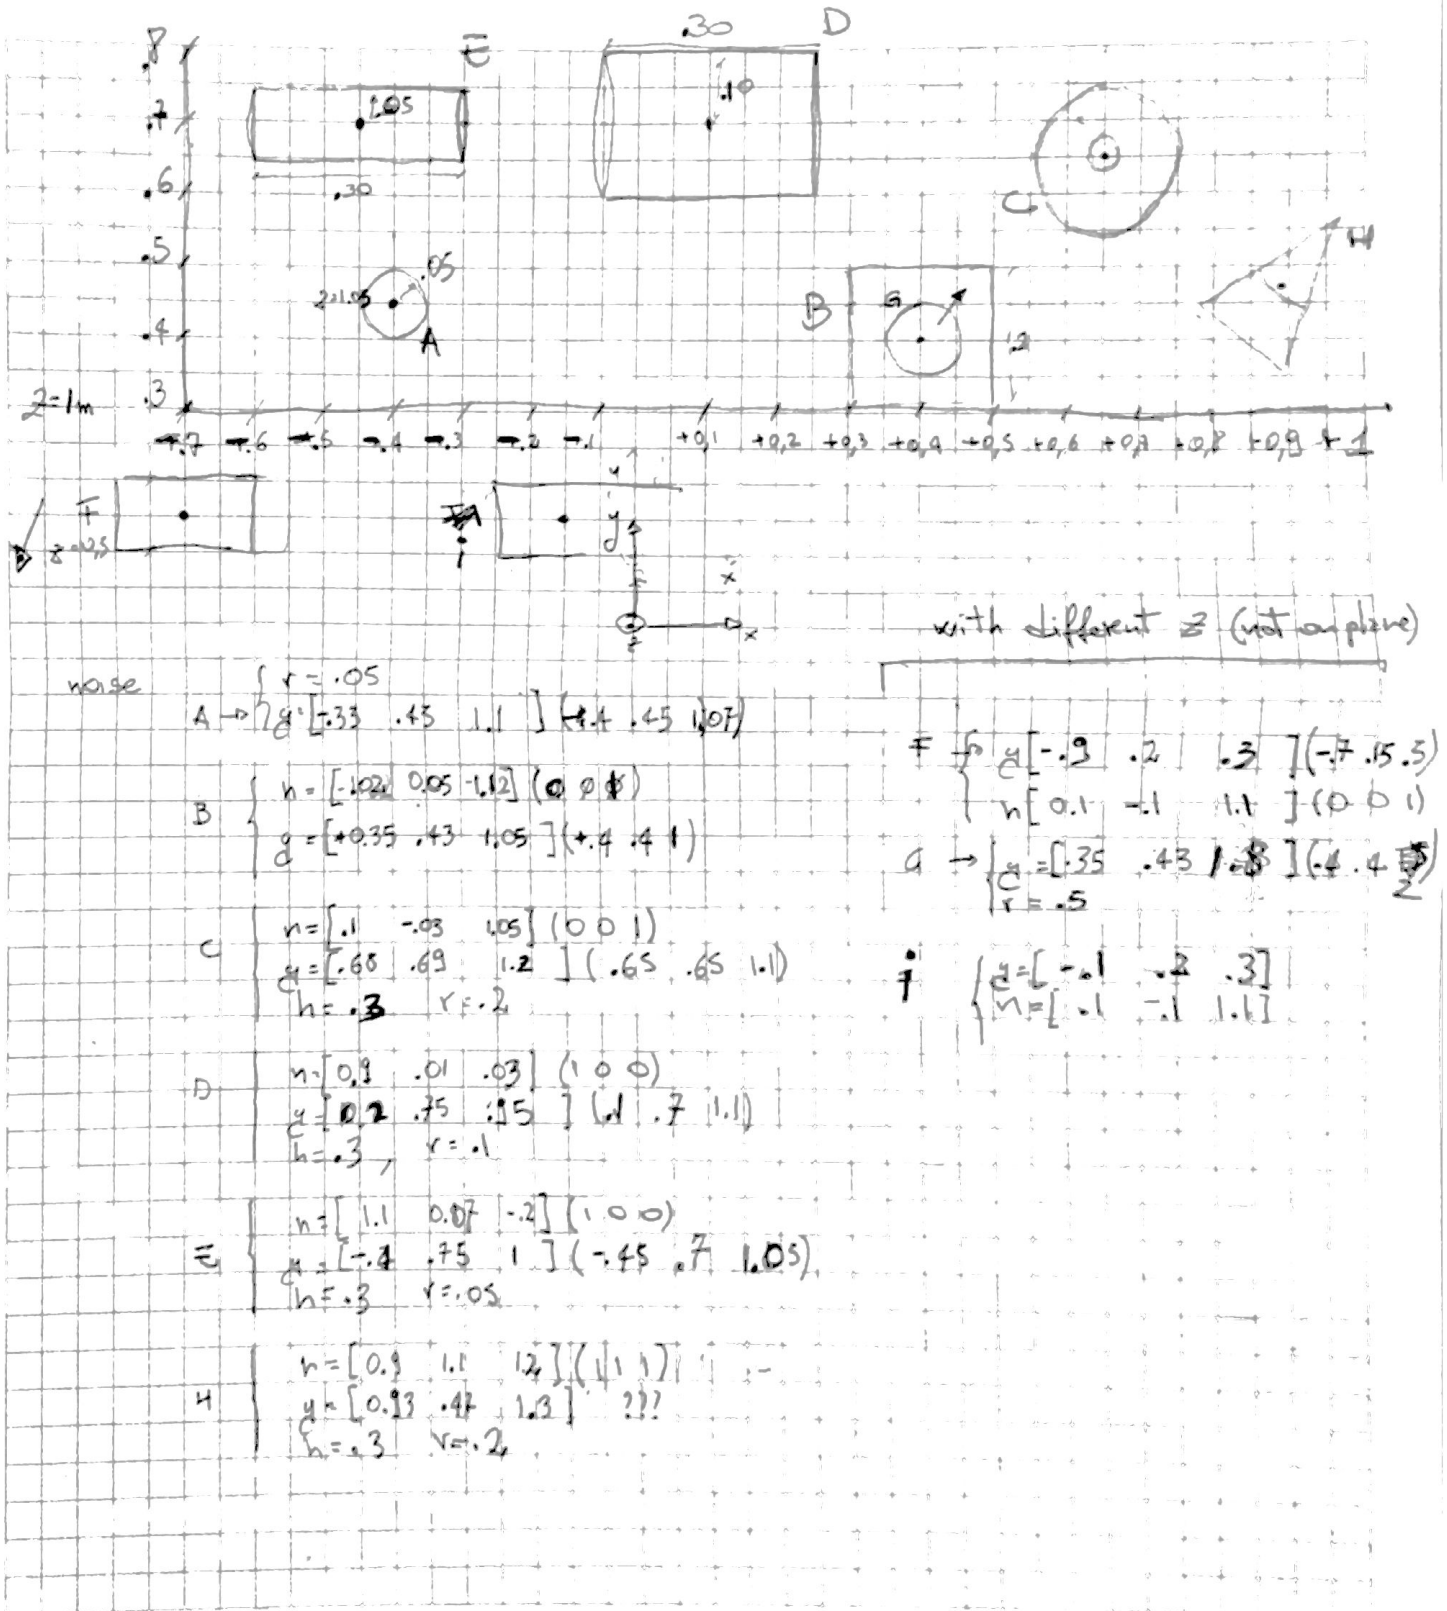 .30 D
.8 E
.7 1.05 .10
.6 .30
C
.5 .05 H
z=1.05 B G
.4 A .2
z=1m .3
-.7 -.6 -.5 -.4 -.3 -.2 -.1 +0,1 +0,2 +0,3 +0,4 +0,5 +0,6 +0,7 +0,8 +0,9 +1
F y
z=0,5 i
x
z
with different z (not on plane)
noise
r = .05
A → c = [-.33 .43 1.1 ] (-.4 .45 1.07)
B
n = [-.02 0.05 -1.12]
c = [+0.35 .43 1.05 ] (+.4 .4 1)
C
n = [.1 -.03 1.05] (0 0 1)
c = [.68 .69 1.2 ] (.65 .65 1.1)
h = .3 r = .2
D
n = [0,9 .01 .03] (1 0 0)
.75 ] (.1 .7 1.1)
h = .3 , r = .1
E
n = [1.1 0.07 -.2] (1 0 0)
.75 1 ] (-.45 .7 1.05)
h = .3 r = .05
H
n = [0.9 1.1 1.2] (1 1 1)
c = [0.93 .47 1.3] ???
h = .3 r = .2
F
c [-.9 .2 .3 ] (-.7 .15 .5)
n [0.1 -.1 1.1 ] (0 0 1)
G → c = [.35 .43
r = .5
i
.3]
n = [.1 -.1 1.1]